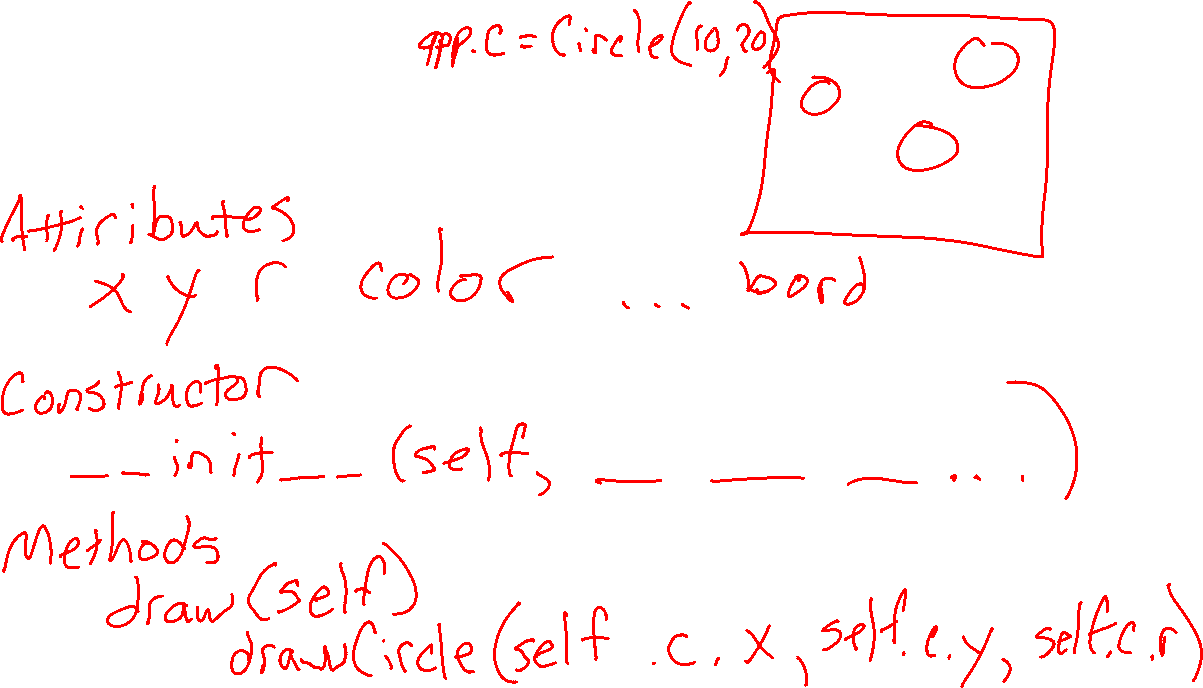 app.c = Circle(10,20)
Attiributes
x y r color ... bord
Constructor
__init__(self, _ _ _ ...)
Methods
draw(self)
drawCircle(self.c.x, self.c.y, self.c.r)